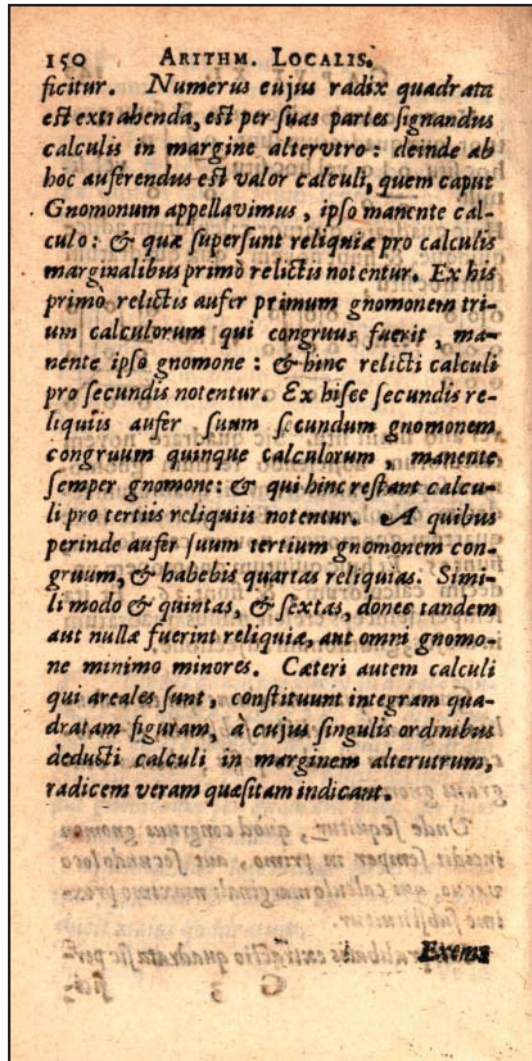 150 ARITHM. LOCALIS.
ficitur. Numerus cujus radix quadrata
est extrahenda, est per suas partes signandus
calculis in margine alterutro: deinde ab
hoc auferendus est valor calculi, quem caput
Gnomonum appellavimus, ipso manente cal-
culo: & quæ supersunt reliquiæ pro calculis
marginalibus primò relictis notentur. Ex his
primò relictis aufer primum gnomonem tri-
um calculorum qui congruus fuerit, ma-
nente ipso gnomone: & hinc relicti calculi
pro secundis notentur. Ex hisce secundis re-
liquiis aufer suum secundum gnomonem
congruum quinque calculorum, manente
semper gnomone: & qui hinc restant calcu-
li pro tertiis reliquiis notentur. A quibus
perinde aufer suum tertium gnomonem con-
gruum, & habebis quartas reliquias. Simi-
li modo & quintas, & sextas, donec tandem
aut nullæ fuerint reliquiæ, aut omni gnomo-
ne minimo minores. Cæteri autem calculi
qui areales sunt, constituunt integram qua-
dratam figuram, à cujus singulis ordinibus
deducti calculi in marginem alterutrum,
radicem veram quæsitam indicant.
Exem-